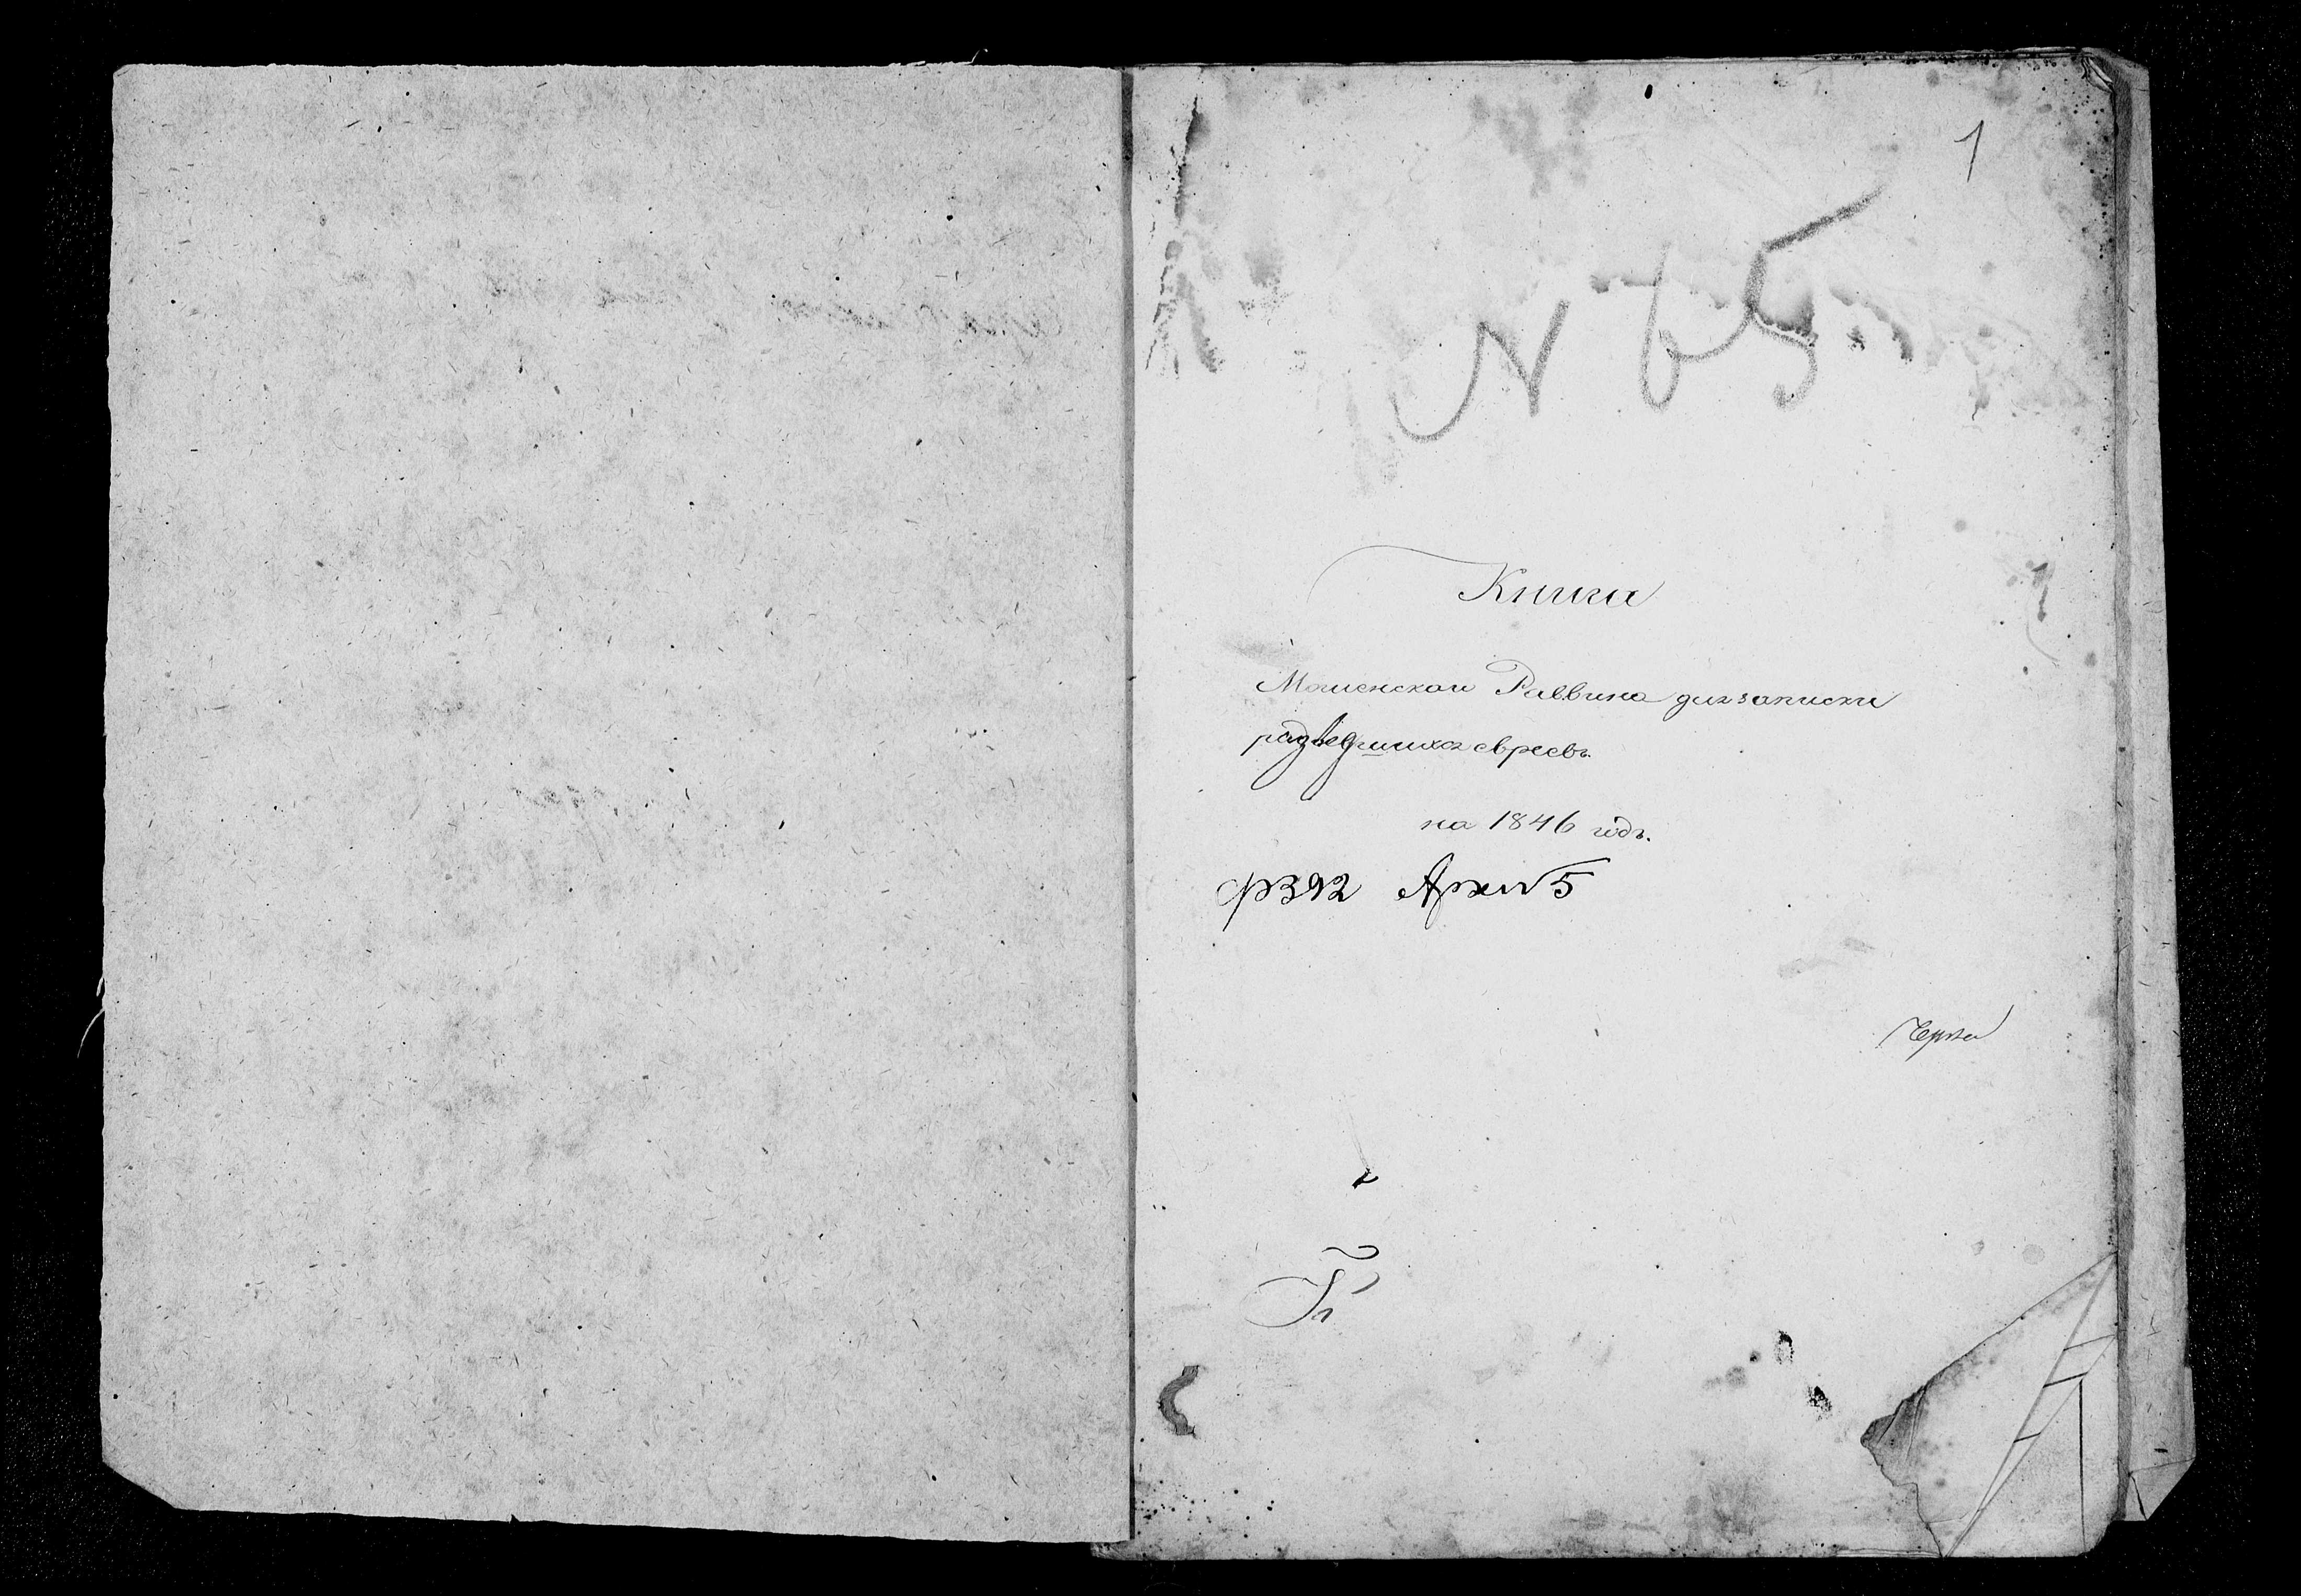 1
N 65
Книга
Мошенскаи Раввина для записки
разведшихся евреевъ
на 1846 годъ.
ф392 Архи 5